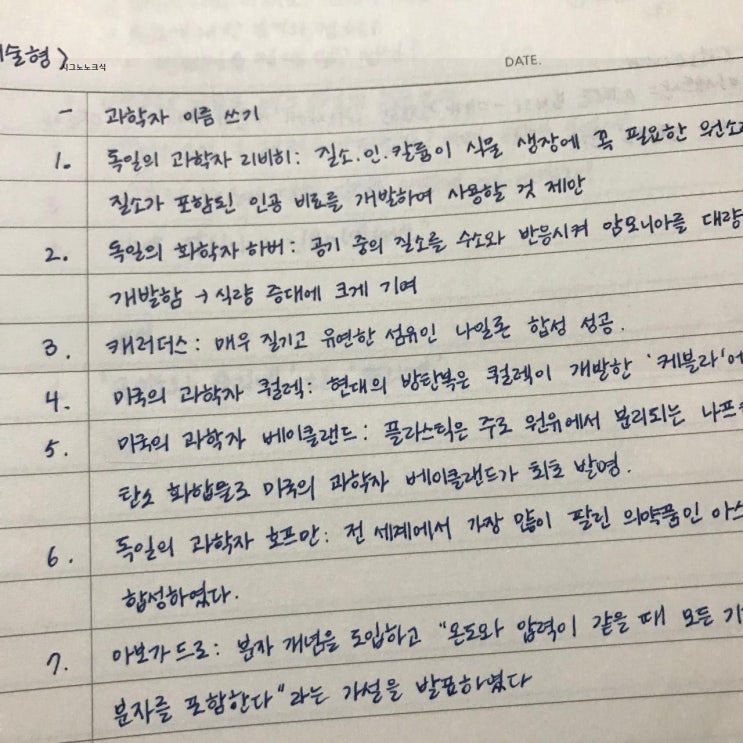 술형>
시그노노크식
DATE.
- 과학자 이름 쓰기
1. 독일의 과학자 리비히: 질소.인.칼륨이 식물 생장에 꼭 필요한 원소
질소가 포함된 인공 비료를 개발하여 사용할 것 제안
2. 독일의 화학자 하버: 공기 중의 질소를 수소와 반응시켜 암모니아를 대량
개발함 → 식량 증대에 크게 기여
3. 캐러더스: 매우 질기고 유연한 섬유인 나일론 합성 성공.
4. 미국의 과학자 퀄렉: 현대의 방탄복은 퀄렉이 개발한 '케블라'에
5. 미국의 과학자 베이클랜드: 플라스틱은 주로 원유에서 분리되는 나프
탄소 화합물로 미국의 과학자 베이클랜드가 최초 발명.
6. 독일의 과학자 호프만: 전 세계에서 가장 많이 팔린 의약품인 아스
합성하였다.
7. 아보가드로: 분자 개념을 도입하고 "온도와 압력이 같을 때 모든 기
분자를 포함한다"라는 가설을 발표하였다